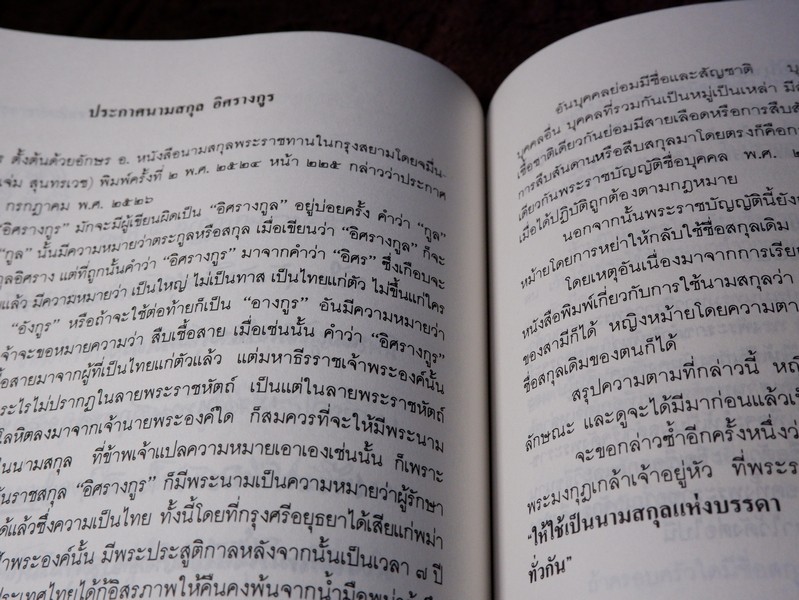 ประกาศนามสกุล อิศรางกูร
ร ตั้งต้นด้วยอักษร อ. หนังสือนามสกุลพระราชทานในกรุงสยามโดยจมื่น-
แจ่ม สุนทรเวช) พิมพ์ครั้งที่ ๒ พ.ศ. ๒๕๒๔ หน้า ๒๒๕ กล่าวว่าประกาศ
กรกฎาคม พ.ศ. ๒๕๒๖
"อิศรางกูร" มักจะมีผู้เขียนผิดเป็น "อิศรางกูล" อยู่บ่อยครั้ง คำว่า "กูล"
"กูล" นั้นมีความหมายว่าตระกูลหรือสกุล เมื่อเขียนว่า "อิศรางกูล" ก็จะ
กูลอิศราง แต่ที่ถูกนั้นคำว่า "อิศรางกูร" มาจากคำว่า "อิศร" ซึ่งเกือบจะ
แล้ว มีความหมายว่า เป็นใหญ่ ไม่เป็นทาส เป็นไทยแก่ตัว ไม่ขึ้นแก่ใคร
"อังกูร" หรือถ้าจะใช้ต่อท้ายก็เป็น "อางกูร" อันมีความหมายว่า
เจ้าจะขอหมายความว่า สืบเชื้อสาย เมื่อเช่นนั้น คำว่า "อิศรางกูร"
ื้อสายมาจากผู้ที่เป็นไทยแก่ตัวแล้ว แต่มหาธีรราชเจ้าพระองค์นั้น
ระไรไม่ปรากฏในลายพระราชหัตถ์ เป็นแต่ในลายพระราชหัตถ์
โลหิตลงมาจากเจ้านายพระองค์ใด ก็สมควรที่จะให้มีพระนาม
ป็นนามสกุล ที่ข้าพเจ้าแปลความหมายเอาเองเช่นนั้น ก็เพราะ
ต้นราชสกุล "อิศรางกูร" ก็มีพระนามเป็นความหมายว่าผู้รักษา
ได้แล้วซึ่งความเป็นไทย ทั้งนี้โดยที่กรุงศรีอยุธยาได้เสียแก่พม่า
พระองค์นั้น มีพระประสูติกาลหลังจากนั้นเป็นเวลา ๗ ปี
ประเทศไทยได้กู้อิสรภาพให้คืนคงพ้นจากน้ำมือพม่า
อันบุคคลย่อมมีชื่อและสัญชาติ
บุคคลอื่น บุคคลที่รวมกันเป็นหมู่เป็นเหล่า
เชื้อชาติเดียวกันย่อมมีสายเลือดหรือการสืบ
การสืบสันดานหรือสืบสกุลมาโดยตรงก็คือการ
เดียวกันพระราชบัญญัติชื่อบุคคล พ.ศ.
เมื่อได้ปฏิบัติถูกต้องตามกฎหมาย
นอกจากนั้นพระราชบัญญัตินี้ยัง
หม้ายโดยการหย่าให้กลับใช้ชื่อสกุลเดิม
โดยเหตุอันเนื่องมาจากการเรียก
หนังสือพิมพ์เกี่ยวกับการใช้นามสกุลว่า
ของสามีก็ได้ หญิงหม้ายโดยความตา
ชื่อสกุลเดิมของตนก็ได้
สรุปความตามที่กล่าวนี้ หญิ
ลักษณะ และดูจะได้มีมาก่อนแล้ว
จะขอกล่าวซ้ำอีกครั้งหนึ่งว่
พระมงกุฎเกล้าเจ้าอยู่หัว ที่พระร
"ให้ใช้เป็นนามสกุลแห่งบรรดา
ทั่วกัน"